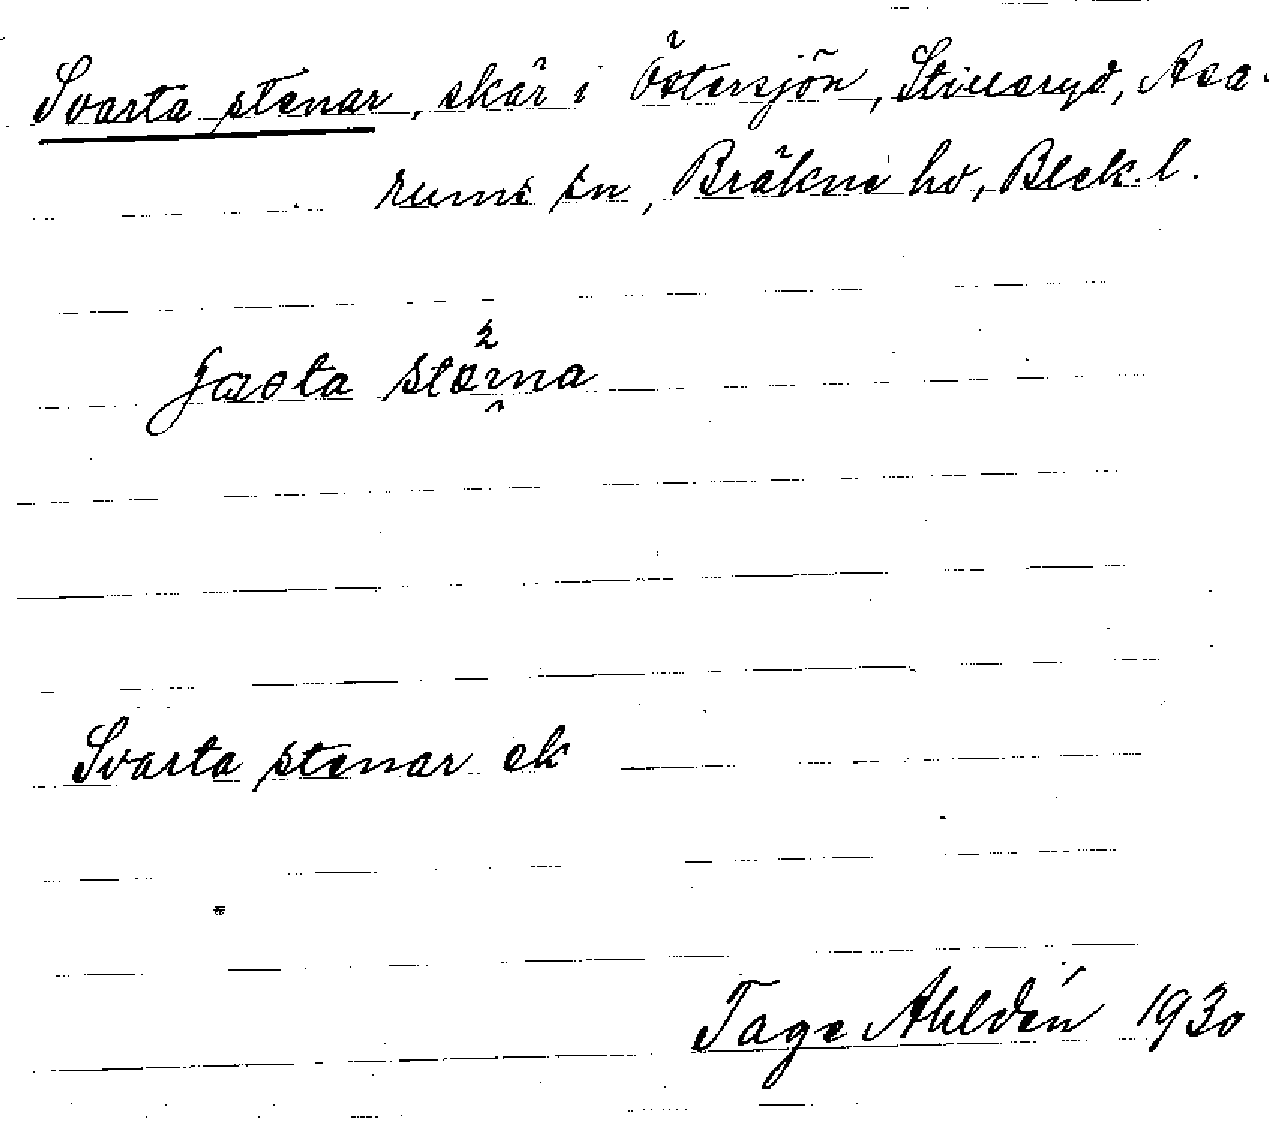 Svarta stenar, skär i Östersjön, Stilleryd, Asa-
rums sn, Bräkne hd, Blek. l.
Svarta stenar ek
Tage Ahldén 1930